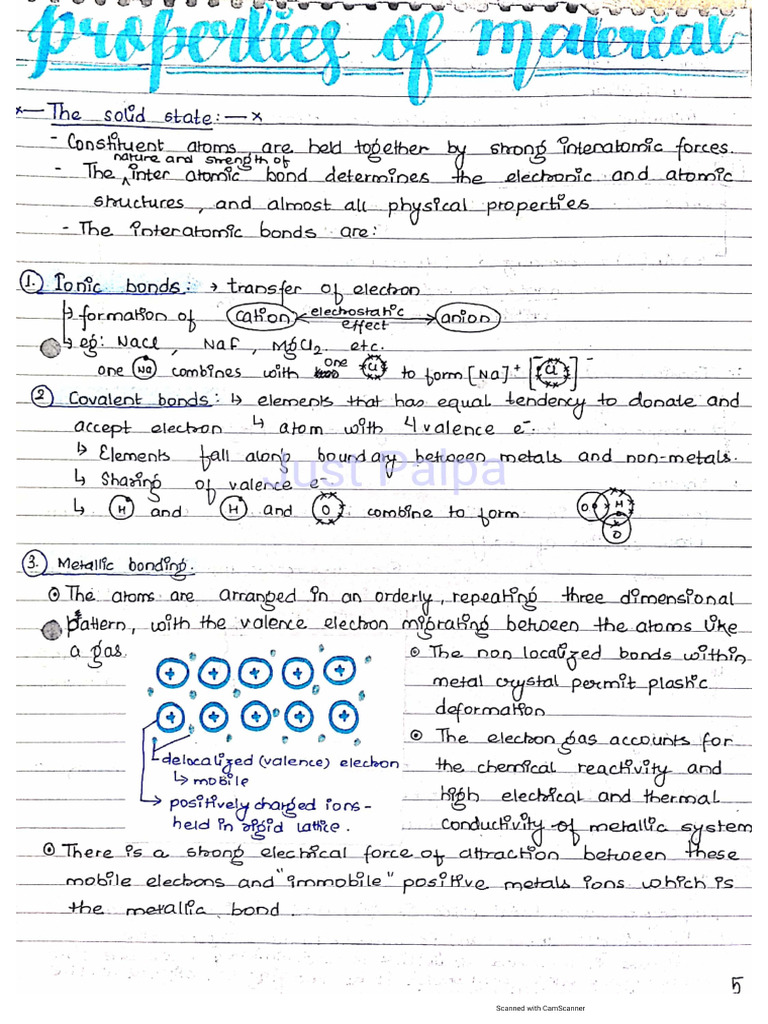 properties of material
x— The solid state:— x
- Constituent atoms, are held together by strong interatomic forces.
nature and strength of
- The ^ inter atomic bond determines the electronic and atomic
structures, and almost all physical properties
- The interatomic bonds are:
1. Ionic bonds: → transfer of electron
↳ formation of cation ← electrostatic effect → anion
↳ eg: NaCl, NaF, MgCl2. etc.
one Na combines with one Cl to form [Na]+ [Cl]-
2 Covalent bonds: ↳ elements that has equal tendency to donate and
accept electron ↳ atom with 4 valence e-.
↳ Elements fall along boundary between metals and non-metals.
Just Palpa
↳ Sharing of valence e-
↳ H and H and O combine to form O H O
3. Metallic bonding.
⊙ The atoms are arranged in an orderly, repeating three dimensional
pattern, with the valence electron migrating between the atoms like
a gas
+ + + + +
+ + + + +
delocalized (valence) electron
↳ mobile
→ positively charged ions -
held in rigid lattice.
⊙ The non localized bonds within
metal crystal permit plastic
deformation
⊙ The electron gas accounts for
the chemical reactivity and
high electrical and thermal
conductivity of metallic system
⊙ There is a strong electrical force of attraction between these
mobile elecrons and "immobile" positive metals ions which is
the metallic bond.
5
Scanned with CamScanner